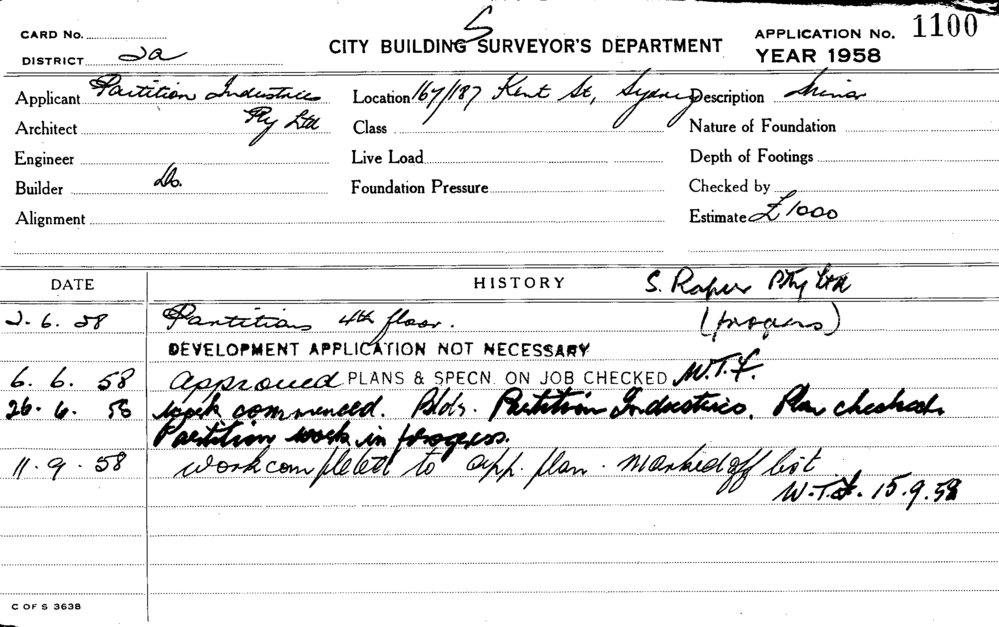 S
CARD No.
DISTRICT 2a
CITY BUILDING SURVEYOR'S DEPARTMENT
APPLICATION No. 1100
YEAR 1958
Applicant Partition Industries Pty Ltd
Location 167/187 Kent St, Sydney
Description Minor
Architect
Class
Nature of Foundation
Engineer
Live Load
Depth of Footings
Builder Do.
Foundation Pressure
Checked by
Alignment
Estimate £1000
DATE
HISTORY
S. Pty Ltd
2.6.58 Partitions 4th floor.
DEVELOPMENT APPLICATION NOT NECESSARY
6.6.58 Approved PLANS & SPECN. ON JOB CHECKED
26.6.58 Work commenced. Bldr. Partition Industries. Plan checked.
Partition work in progress.
11.9.58 Work completed to app. plan. Marked off list
15.9.58
C OF S 3638